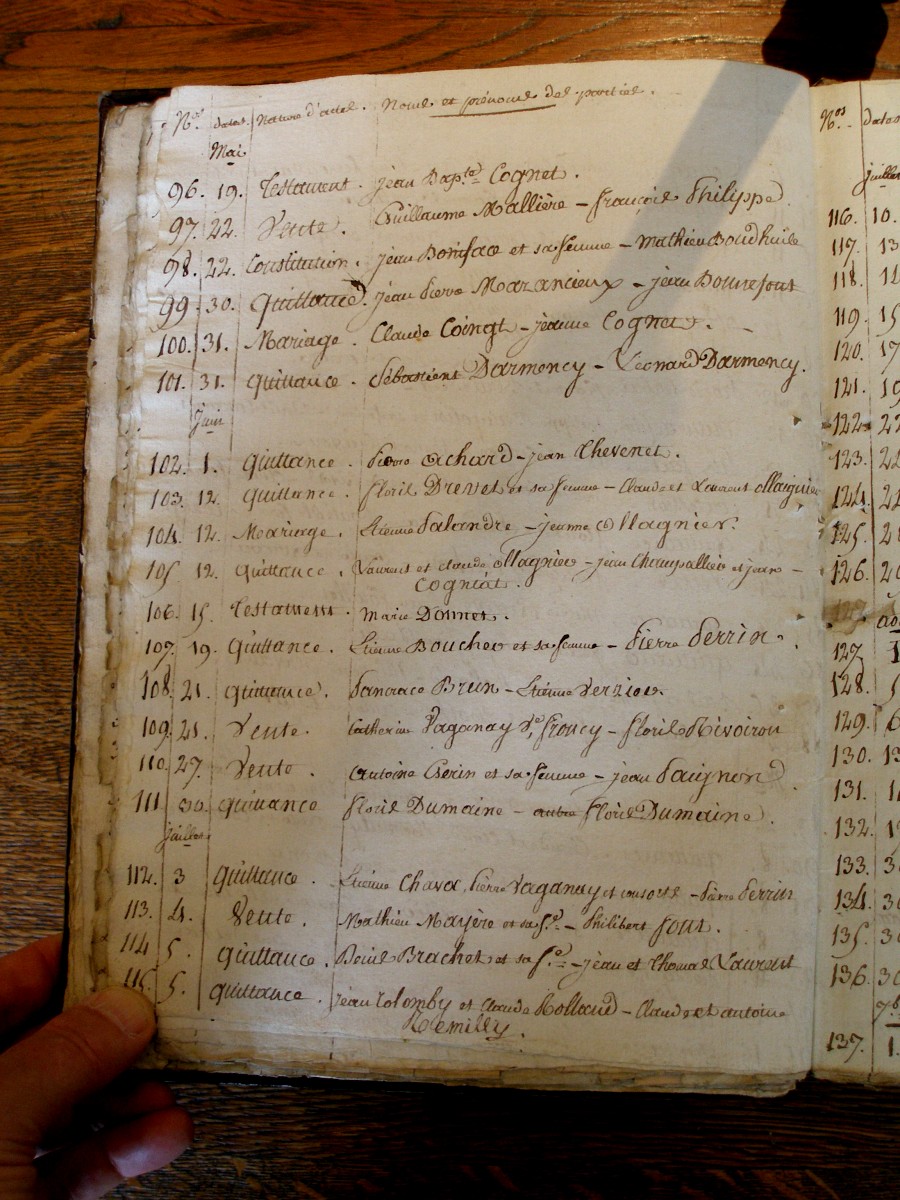 Nos. dates. Nature d'actes. Noms et prénoms des parties.
Mai
96. 19. Testament. jean Bapte. Cognet.
97. 22. Vente. Guillaume Mallière - françois Philippe.
98. 22. Constitution. jean Boniface et sa femme - mathieu
99. 30. Quittance. jean Pierre Mazancieux - jean Bonnefont
100. 31. Mariage. Claude Coingt - jeanne Cognet.
101. 31. quittance. Sébastient Darmency - Léonard Darmency.
juin
102. 1. quittance. Pierre Achard - jean Chevenet.
103. 12. quittance. floris Drevet et sa femme - Claude et Laurent
104. 12. Mariage. Etienne Palandre - jeanne Ollagnier.
105. 12. quittance. Laurent et claude Ollagnier - jean Champallier et jean -
Cogniat.
106. 15. Testament. marie Donnet.
107. 19. quittance. Etienne Boucher et sa femme - Pierre Perrin.
108. 21. quittance. Pancrace Brun - Etienne Verrier.
109. 21. Vente. Catherine Vaganay Ve. froucy - floris Rivoiron
110. 27. Vente. Antoine et sa femme - jean
111. 30. quittance floris Dumaine - autre floris Dumaine.
juillet
112. 3 quittance. Etienne Chava, Pierre Vaganay et consorts - Pierre Perrin
113. 4. Vente. Mathieu Mayère et sa fe. - Philibert font.
114 5. quittance. Denis Brachet et sa fe. - jean et Thomas Laurent
115. 5. quittance. jean Colomby et Claude Rolland - Claude et antoine
Remilly.
Nos. dates
juillet
116. 10.
117. 13
118.
119. 15
120. 17
121. 19
122. 22
123. 22
124.
125.
126.
127.
128. 5
129. 6
130. 13
131.
132.
133. 30
134. 30
135. 30
136. 30
137. 1.